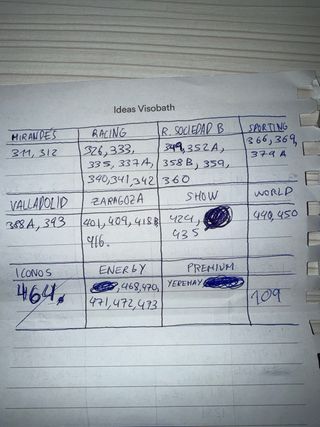 Ideas Visobath
MIRANDÉS RACING R. SOCIEDAD B SPORTING
311, 312 326, 333, 349, 352A, 366, 369,
335, 337A, 358B, 359, 379A
340, 341, 342 360
VALLADOLID ZARAGOZA SHOW WORLD
388A, 393 401, 409, 418B, 424, 440, 450
416. 435
ICONOS ENERGY PREMIUM
464. , 468, 470, YEREMAY 109
471, 472, 473